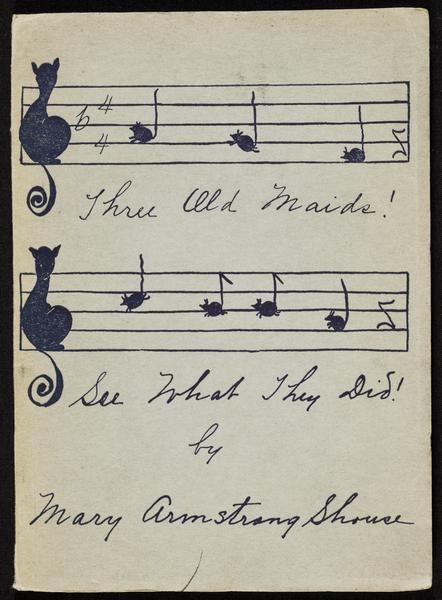 4
4
Three Old Maids!
See What They Did!
by
Mary Armstrong Shouse